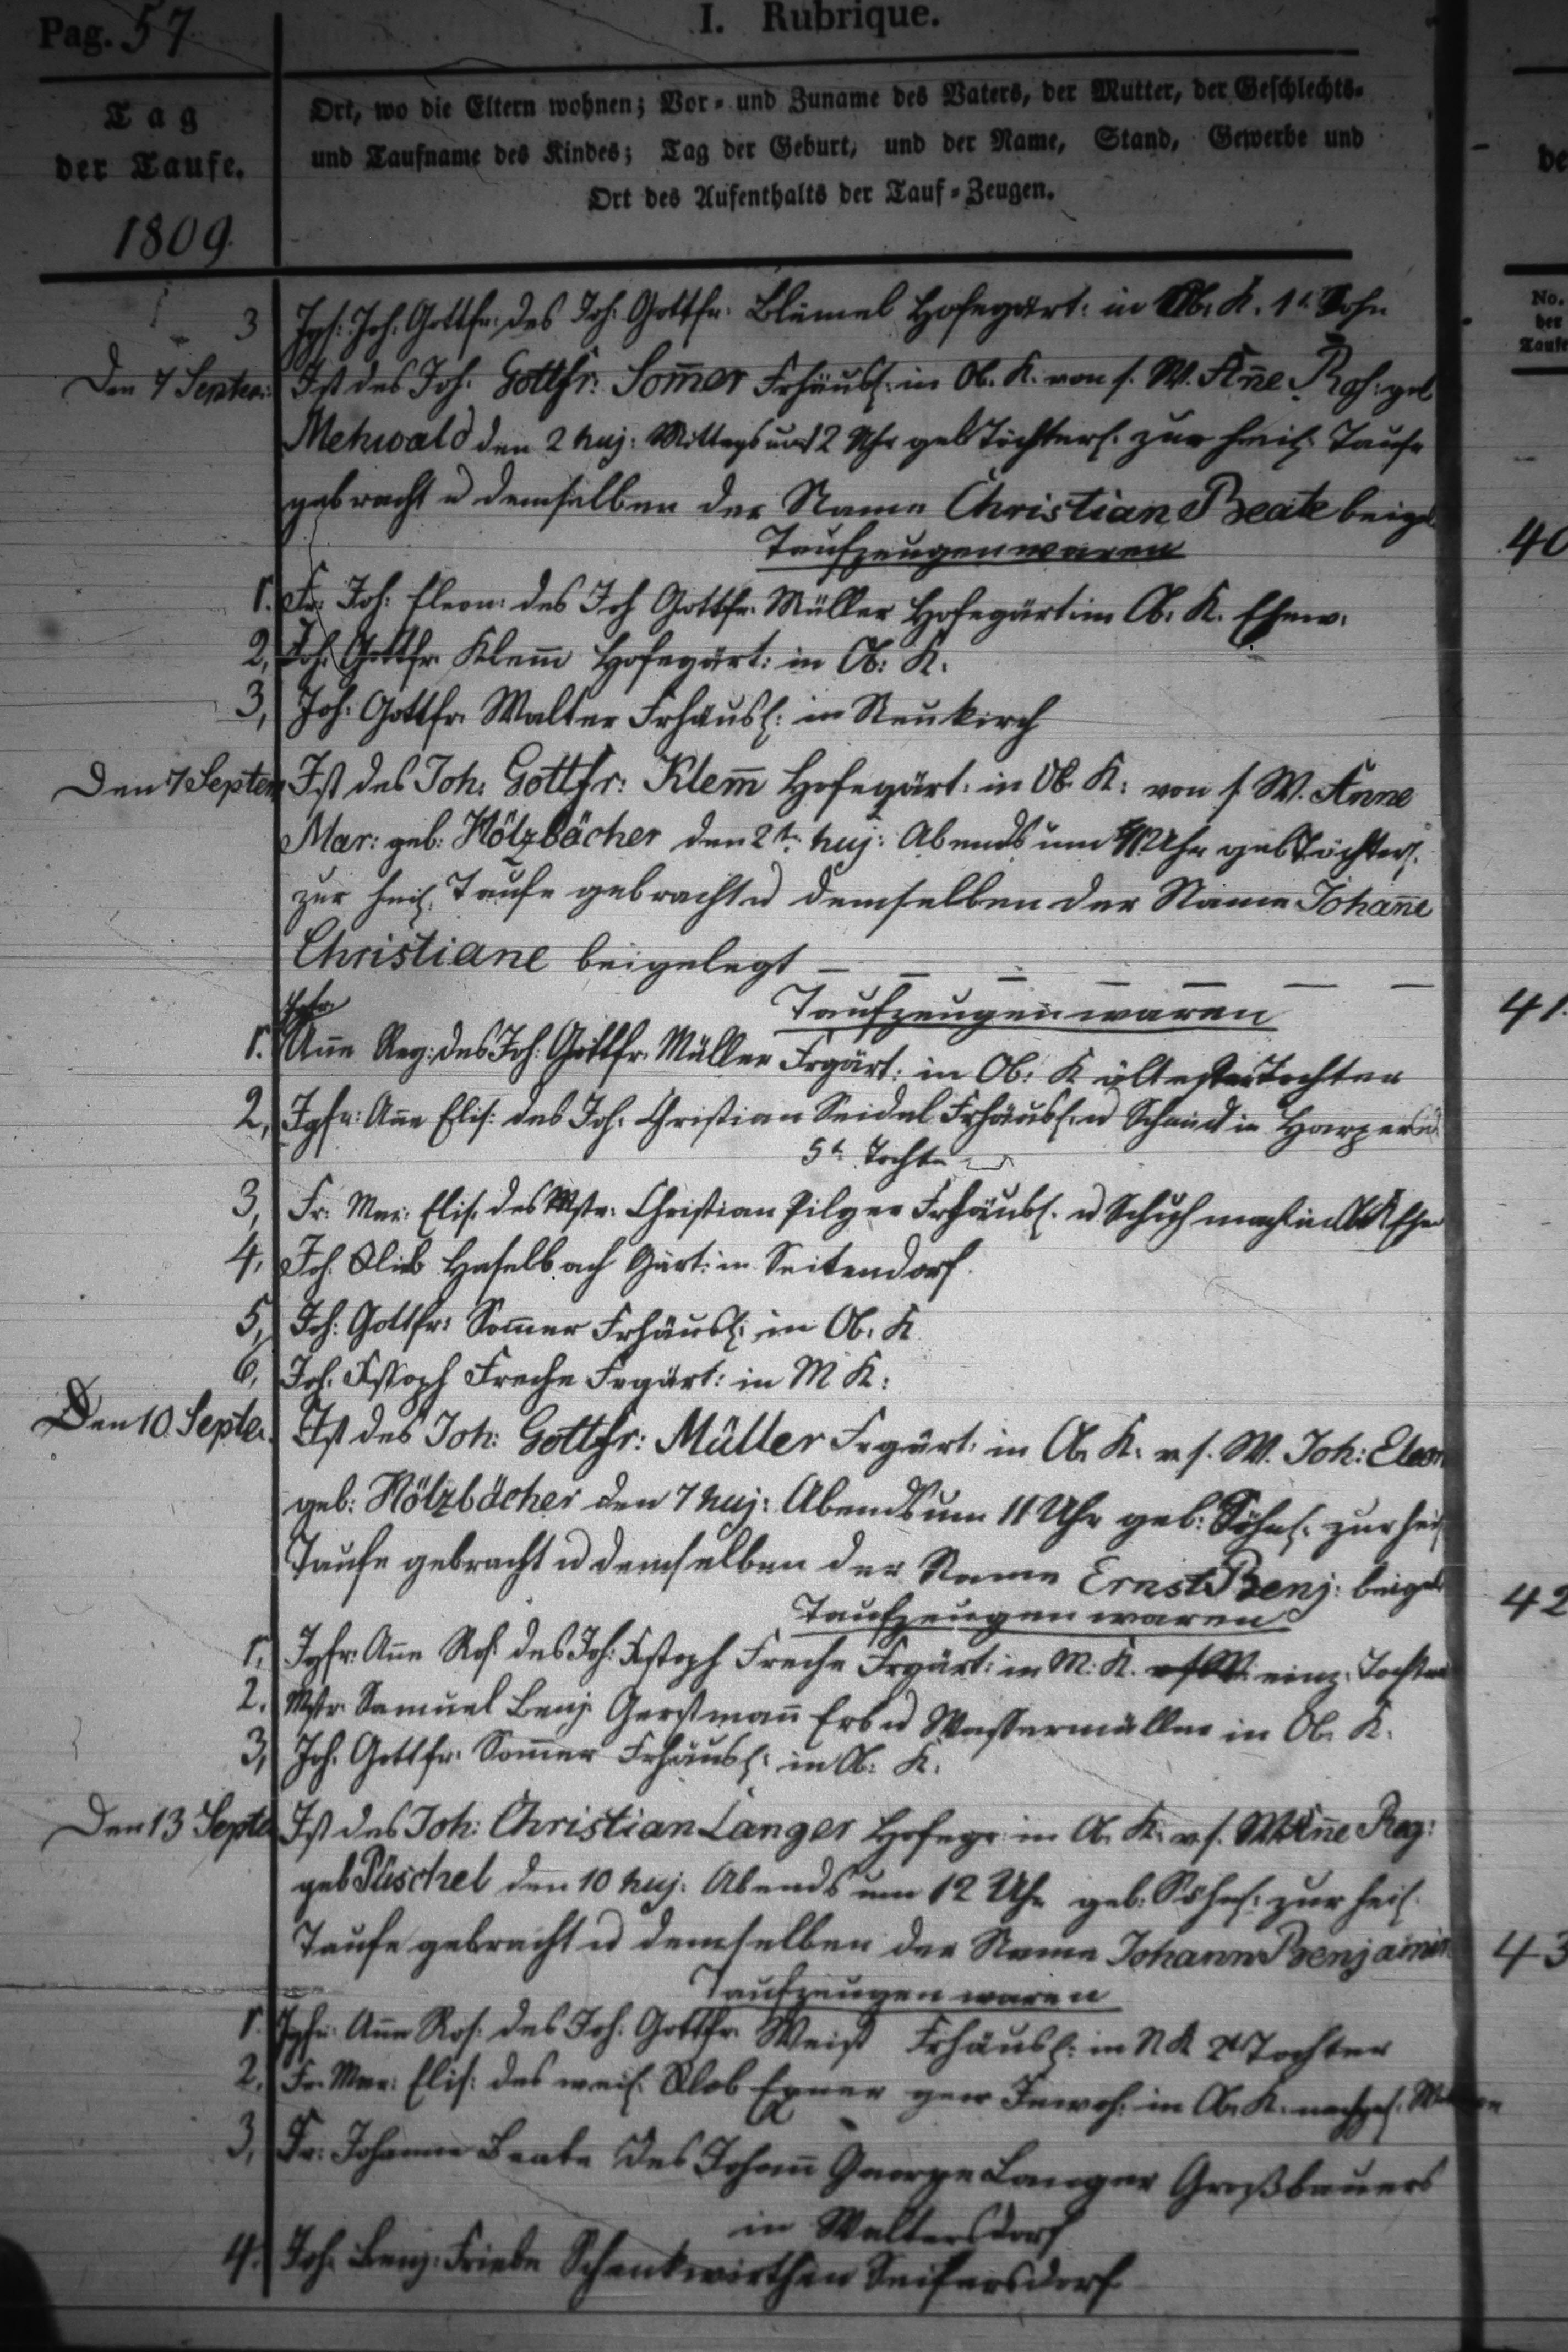 Pag. 57
I. Rubrique.
Tag
der Taufe.
1809
Ort, wo die Eltern wohnen; Vor- und Zuname des Vaters, der Mutter, der Geschlechts-
und Taufname des Kindes; Tag der Geburt, und der Name, Stand, Gewerbe und
Ort des Aufenthalts der Tauf-Zeugen.
3 Jgs: Joh. Gottfr: des Joh: Gottfr: Blümel Hofegärt: in Ob. K. 1t Sohn
Den 7 Septem: Ist des Joh. Gottfr: Som̄er Frhäusl: in Ob. K. von s. W. An̄e Ros: geb
Mehwald den 2 huj: Mittags um 12 Uhr geb Töchterl. zur heil. Taufe
gebracht u demselben der Name Christian Beate beigel
Taufzeugen waren
1. Fr: Joh: Eleon: des Joh Gottfr. Müller Hofegärt in Ob. K. Ehew.
2, Joh. Gottfr. Klem̄ Hofegärt: in Ob: K.
3, Joh: Gottfr. Walter Frhäusl: in Neukirch
Den 7 Septem Ist des Joh: Gottfr: Klem̄ Hofegärt: in Ob. K: von s. W. Anne
Mar: geb: Hölzbächer den 2t huj: Abends um Uhr geb Töchterl.
zur heil. Taufe gebracht u demselben der Name Johan̄e
Christiane beigelegt — — — — — — —
Taufzeugen waren
Jgfr.
1. An̄e Reg: des Joh: Gottfr. Müller Frgärt: in Ob: K ältester Tochter
2, Jgfr: An̄e Elis: des Joh. Christian Seidel Frhäusl. u Schmid in Harpersd
5t Tochter
3, Fr: Mar: Elis. des Mstr. Christian Pilger Frhäusl. u Schuhmach in Ob K Ehe
4. Joh. Glieb Haselbach Gärt: in Seitendorf.
5, Joh: Gottfr: Som̄er Frhäusl: in Ob. K
6, Joh. Xstoph Freche Frgärt: in M K:
Den 10 Septe. Ist des Joh: Gottfr: Müller Frgärt: in Ob. K. v. s. W. Joh: Eleon
geb: Hölzbächer den 7 huj: Abends um 11 Uhr geb: Söhnl: zur heil
Taufe gebracht u demselben der Name Ernst Benj: beigel
Taufzeugen waren
1, Jgfr: An̄e Ros: des Joh: Xstoph Freche Frgärt: in M: K. einz. Tochter
2. Mstr. Samuel Benj. Gerstman̄ Erb u Wassermüller in Ob. K.
3, Joh. Gottfr. Som̄er Frhäusl: in Ob: K.
Den 13 Septe Ist des Joh: Christian Langer Hofegr: in Ob. K. v. s. W. An̄e Reg:
geb Püschel den 10 huj: Abends um 12 Uhr geb: Söhnl: zur heil.
Taufe gebracht u demselben der Name Johann Benjamin
Taufzeugen waren
1. Jgfr: An̄e Ros: des Joh. Gottfr. Weist Frhäusl: in N K 2t Tochter
2. Fr. Mar: Elis: des weil. Glob Exner gew Inwoh: in Ob. K. nachgel. Wittwe
3, Fr: Johanne Beate des Johan̄ George Langer Großbauers
in Waltersdorf
4. Joh. Benj: Friebe Schenkwirth in Seifersdorf
No.
der
Taufe
40
41.
42
43